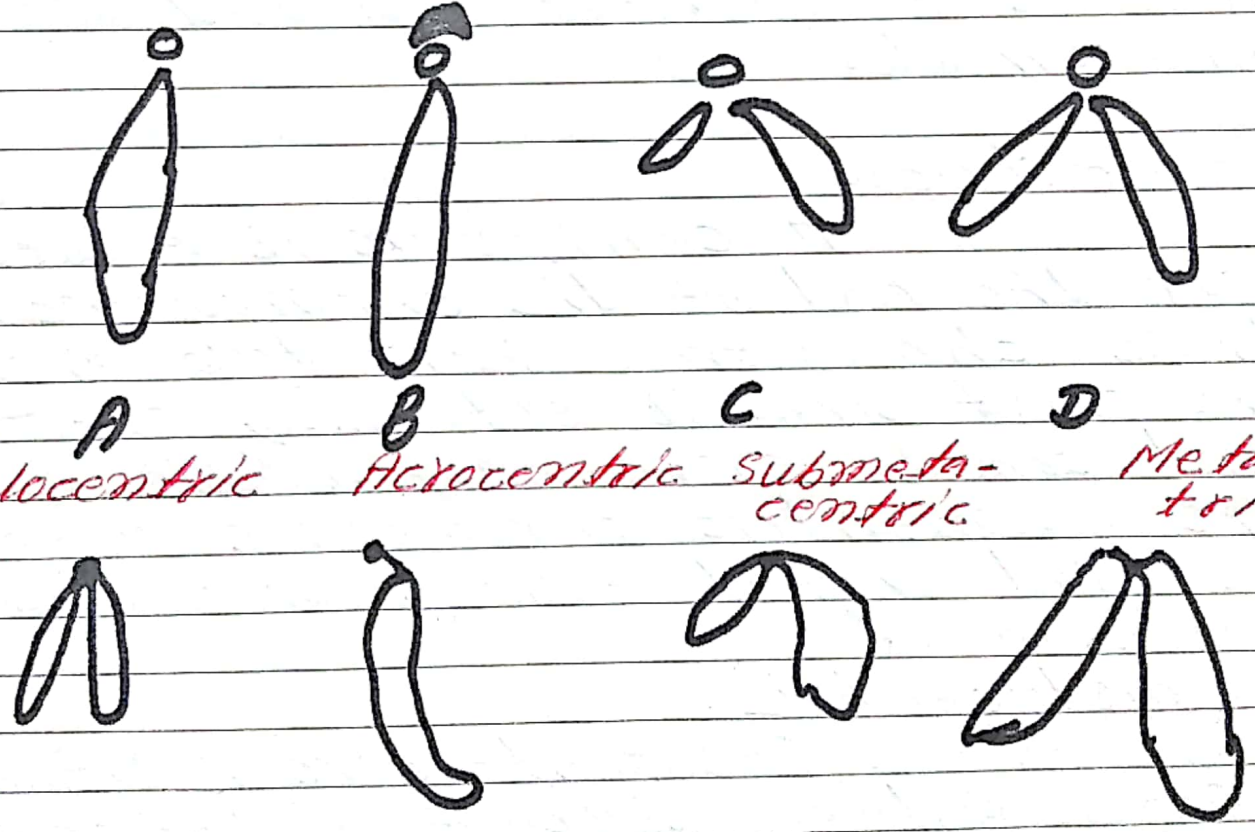 A B C D
locentric Acrocentric Submeta- Meta
centric tri